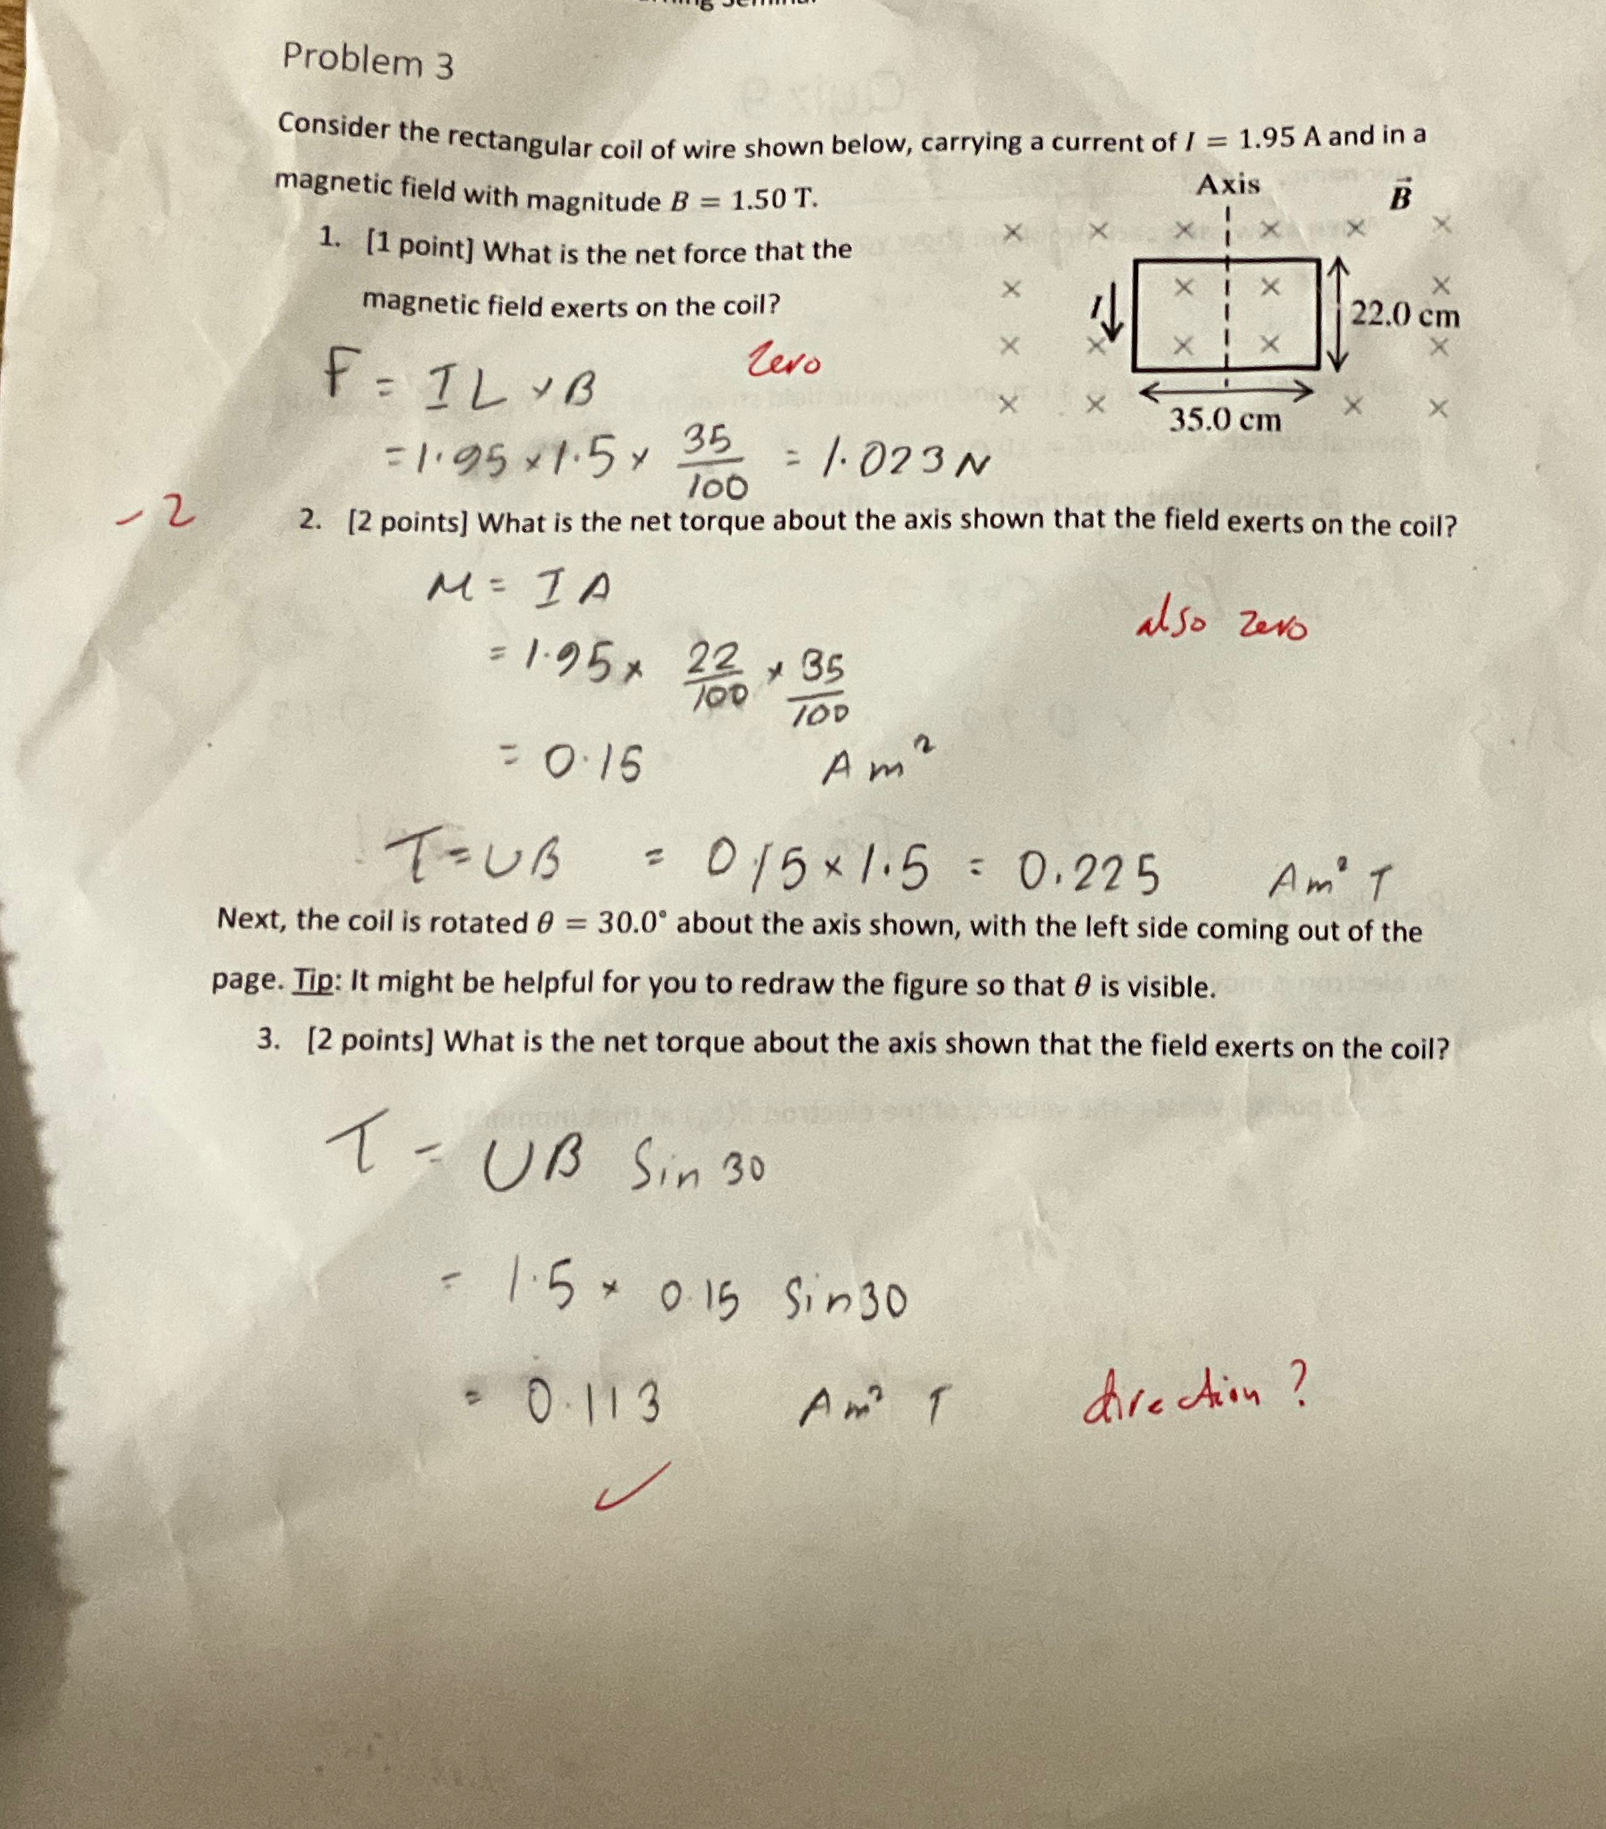 Problem 3
Consider the rectangular coil of wire shown below, carrying a current of I = 1.95 A and in a
magnetic field with magnitude B = 1.50 T.
Axis
B⃗
1. [1 point] What is the net force that the
magnetic field exerts on the coil?
I
22.0 cm
35.0 cm
zero
F = I L × B
= 1.95 × 1.5 × 35/100 = 1.023 N
-2
2. [2 points] What is the net torque about the axis shown that the field exerts on the coil?
M = I A
also zero
= 1.95 × 22/100 × 35/100
= 0.15 Am²
T = UB = 0.15 × 1.5 = 0.225 Am² T
Next, the coil is rotated θ = 30.0° about the axis shown, with the left side coming out of the
page. Tip: It might be helpful for you to redraw the figure so that θ is visible.
3. [2 points] What is the net torque about the axis shown that the field exerts on the coil?
T = UB Sin 30
= 1.5 × 0.15 Sin 30
= 0.113 Am² T
direction?